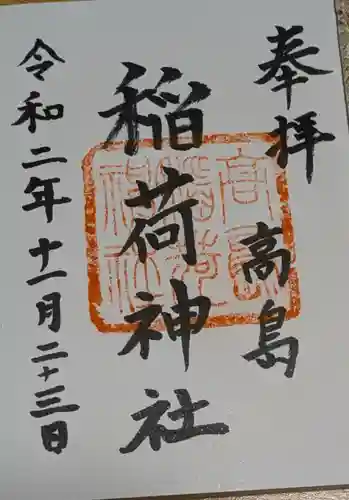 奉拝
高島
稲荷神社
令和二年十一月二十三日